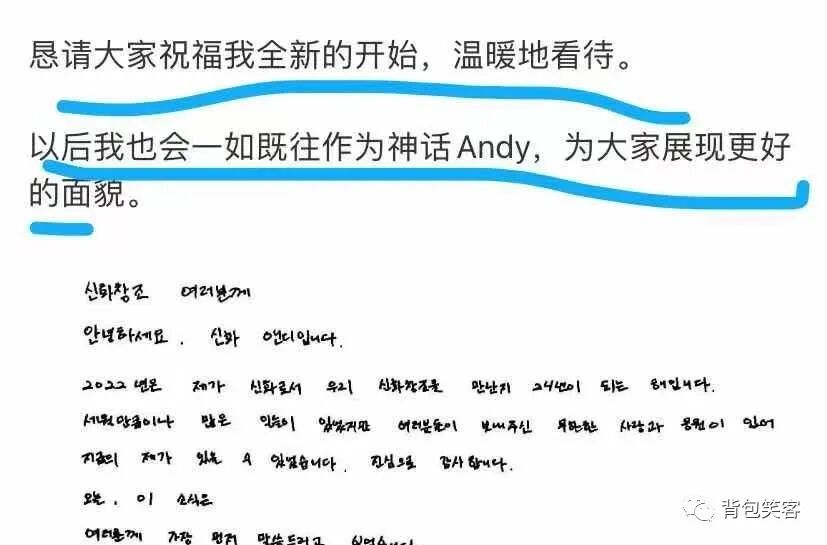 恳请大家祝福我全新的开始，温暖地看待。
以后我也会一如既往作为神话Andy，为大家展现更好
的面貌。
신화창조 여러분께
안녕하세요. 신화 앤디입니다.
2022년은 제가 신화로서 우리 신화창조를 만난지 24년이 되는 해입니다.
세월만큼이나 많은 일들이 있었지만 여러분들이 보내주신 무한한 사랑과 응원이 있어
지금의 제가 있을 수 있었습니다. 진심으로 감사합니다.
오늘, 이 소식은
여러분께 가장 먼저 말씀드리고
背包笑客